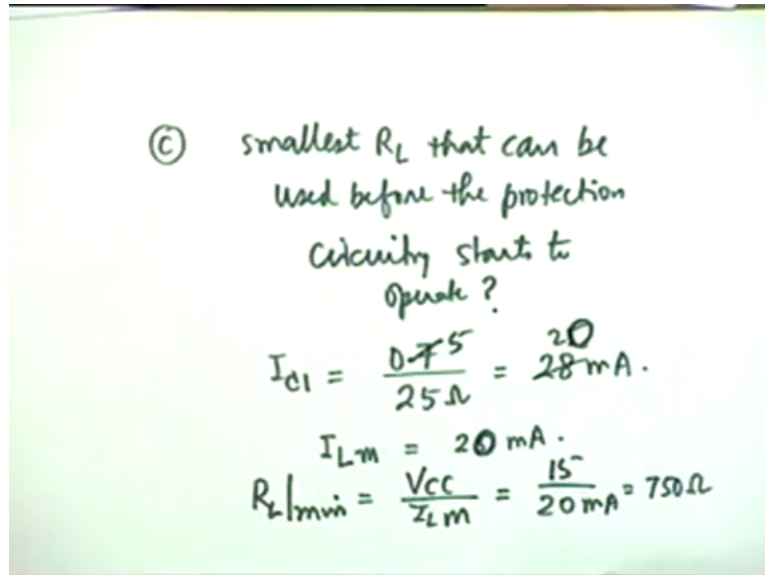 Ⓒ smallest RL that can be
used before the protection
circuitry starts to
operate?
IC1 = 0.5 / 25Ω = 20 mA.
ILm = 20 mA.
RL|min = VCC / ILm = 15 / 20mA = 750Ω